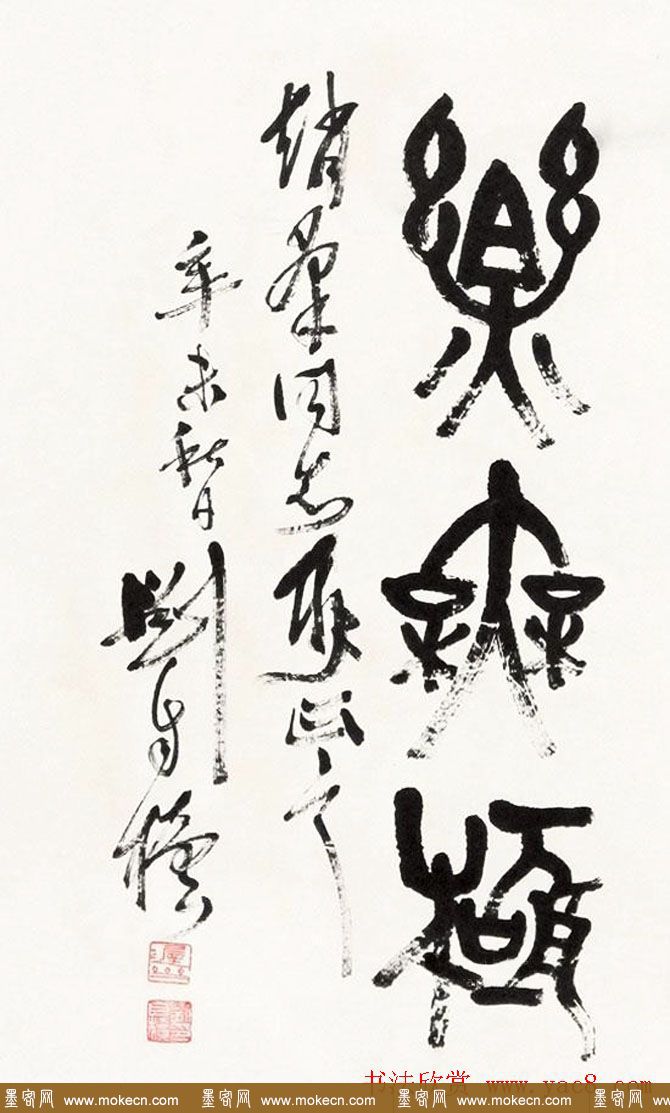 樂無極
趙 同志雅正之
辛未秋月 劉自櫝
书法欣赏 www.yac8.com
墨客网 www.mokecn.com 墨客网 www.mokecn.com 墨客网 www.mokecn.com 墨客网 www.mokecn.com